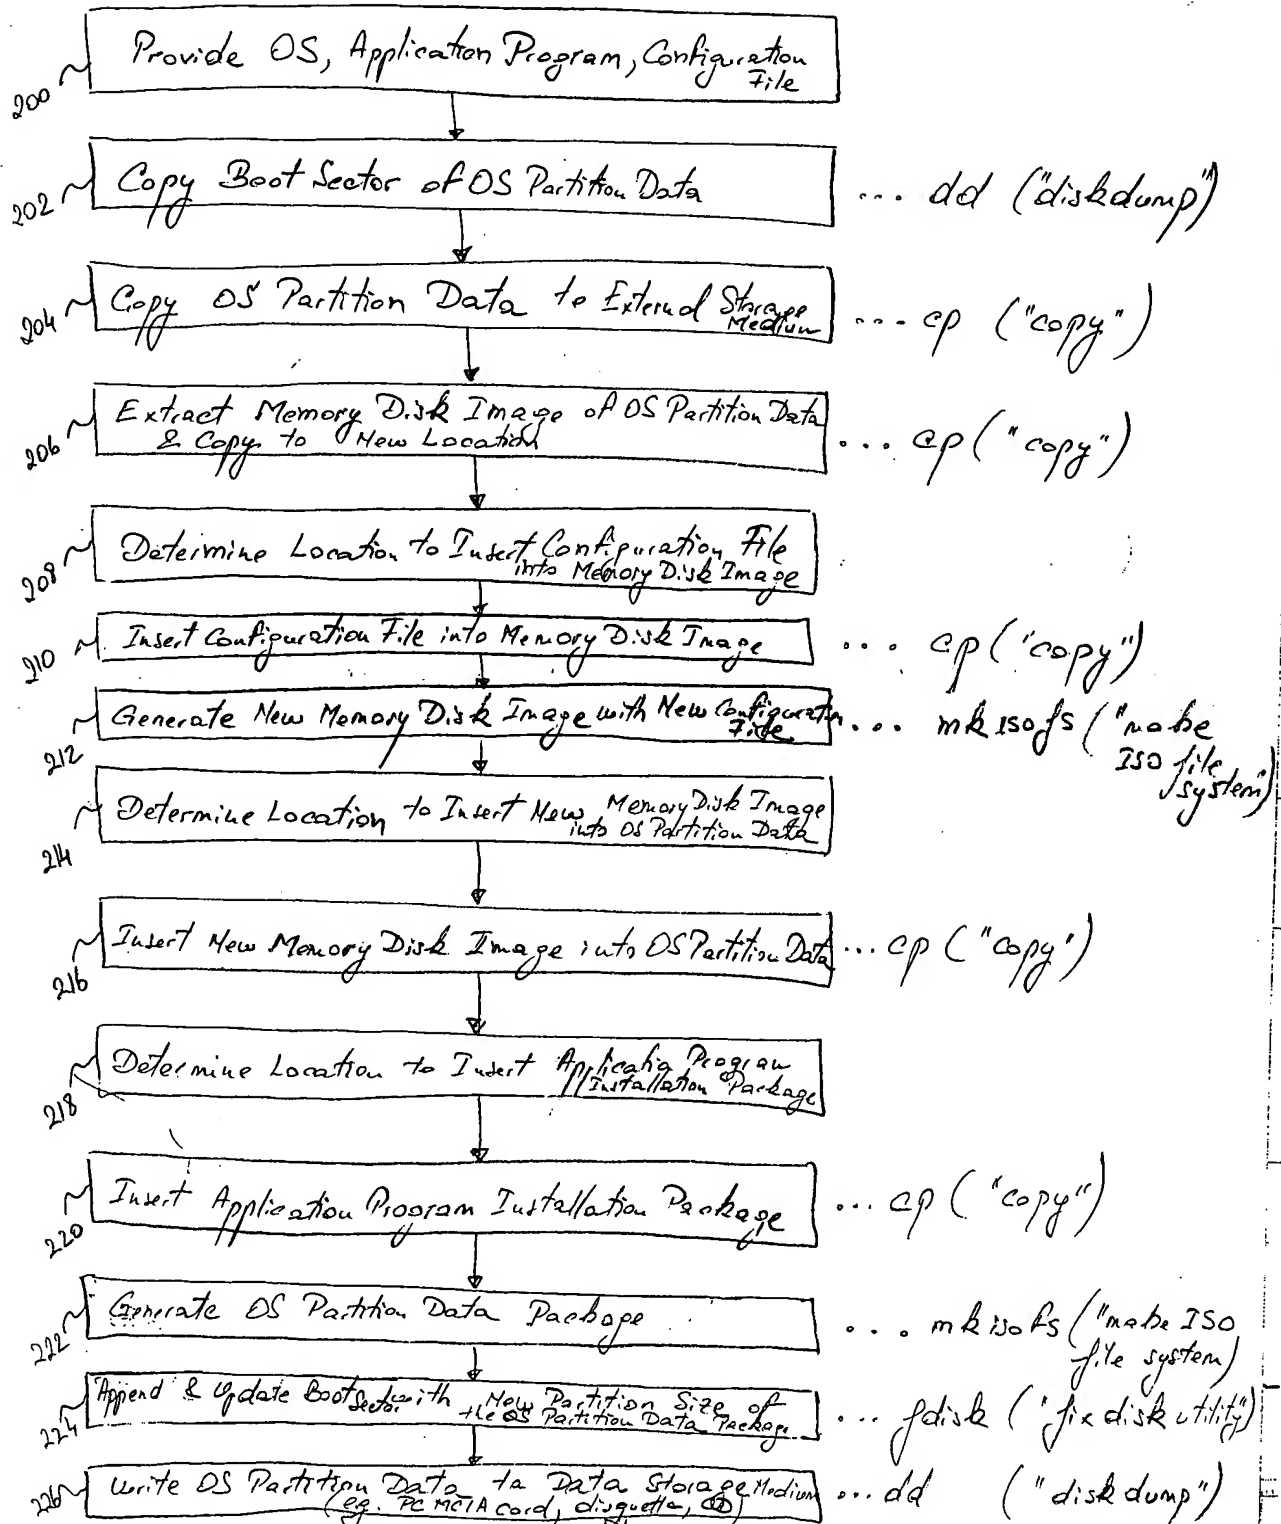 Provide OS, Application Program, Configuration
File
200
Copy Boot Sector of OS Partition Data
... dd ("diskdump")
202
Copy OS Partition Data to External Storage
Medium
... cp ("copy")
204
Extract Memory Disk Image of OS Partition Data
& Copy to New Location
... cp ("copy")
206
Determine Location to Insert Configuration File
into Memory Disk Image
208
Insert Configuration File into Memory Disk Image
... cp ("copy")
210
Generate New Memory Disk Image with New Configuration
File
... mkisofs ("make
ISO file
system")
212
Determine Location to Insert New Memory Disk Image
into OS Partition Data
214
Insert New Memory Disk Image into OS Partition Data
... cp ("copy")
216
Determine Location to Insert Applicatio Program
Installation Package
218
Insert Application Program Installation Package
... cp ("copy")
220
Generate OS Partition Data Package
... mkisofs ("make ISO
file system)
222
Append & Update Boot Sector with New Partition Size of
the OS Partition Data Package
... fdisk ("fix disk utility")
224
Write OS Partition Data to Data Storage Medium
(e.g. PCMCIA card, disquette, CD)
... dd ("disk dump")
226